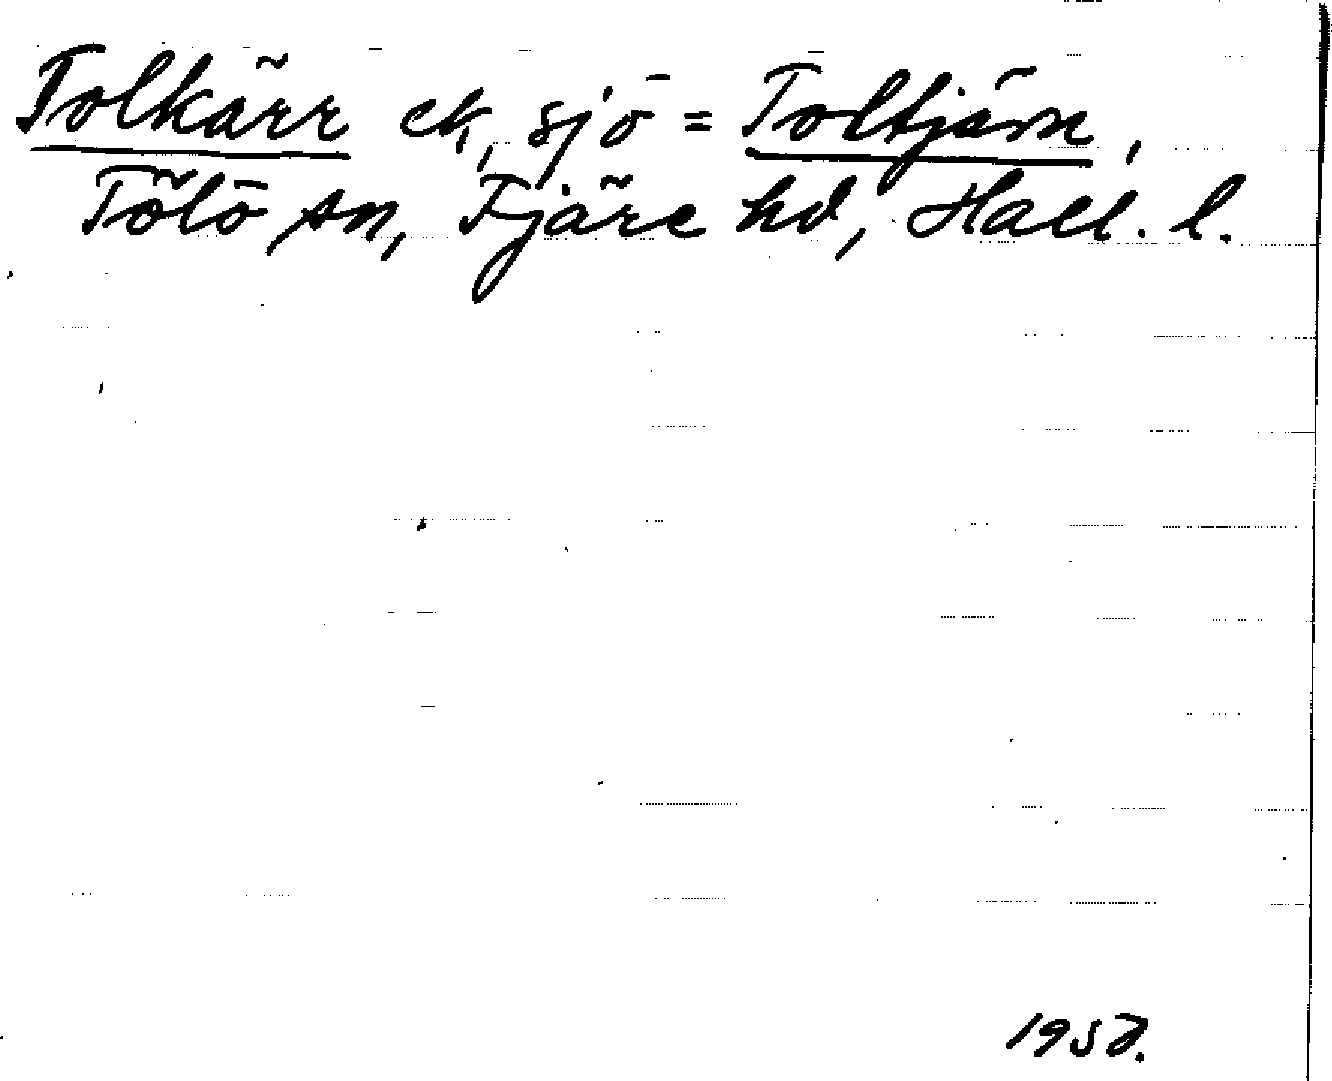 Tolkärr ek, sjö = Toltjärn,
Tölö sn, Fjäre hd, Hall. l.